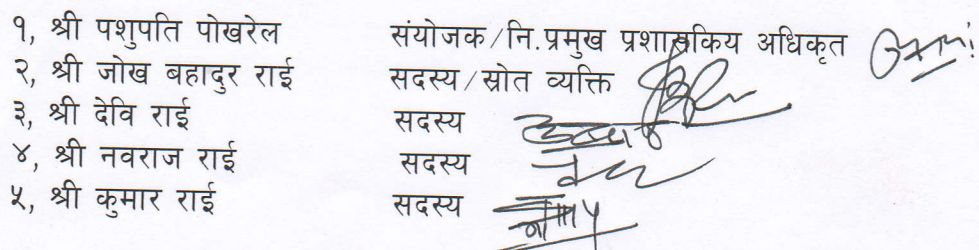 १, श्री पशुपति पोखरेल संयोजक/नि.प्रमुख प्रशासकिय अधिकृत
२, श्री जोख बहादुर राई सदस्य/स्रोत व्यक्ति
३, श्री देवि राई सदस्य
४, श्री नवराज राई सदस्य
५, श्री कुमार राई सदस्य